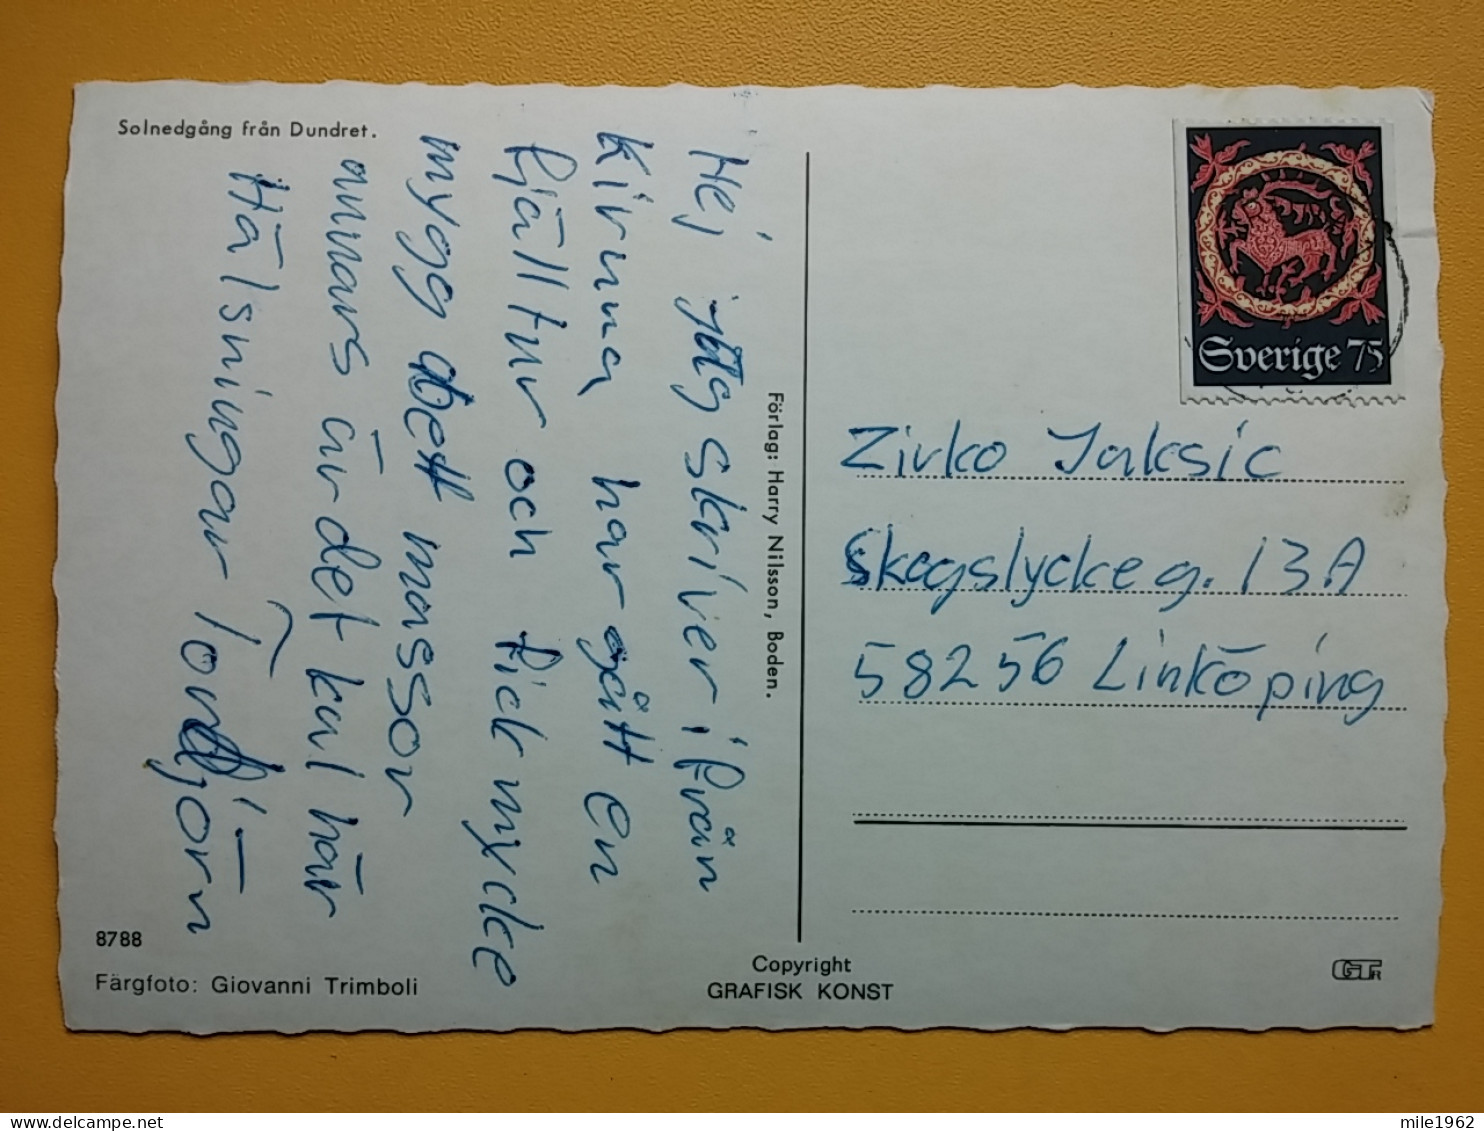 Solnedgång från Dundret.
Hej jag skriver ifrån
Kiruna har gått en
fjälltur och fick mycke
mygg bett massor
annars är det kul här
Hälsningar Torbjörn
8788
Färgfoto: Giovanni Trimboli
Förlag: Harry Nilsson, Boden.
Copyright
GRAFISK KONST
Sverige 75
Zivko Jaksic
Skogslyckeg. 13A
58256 Linköping
mile1962